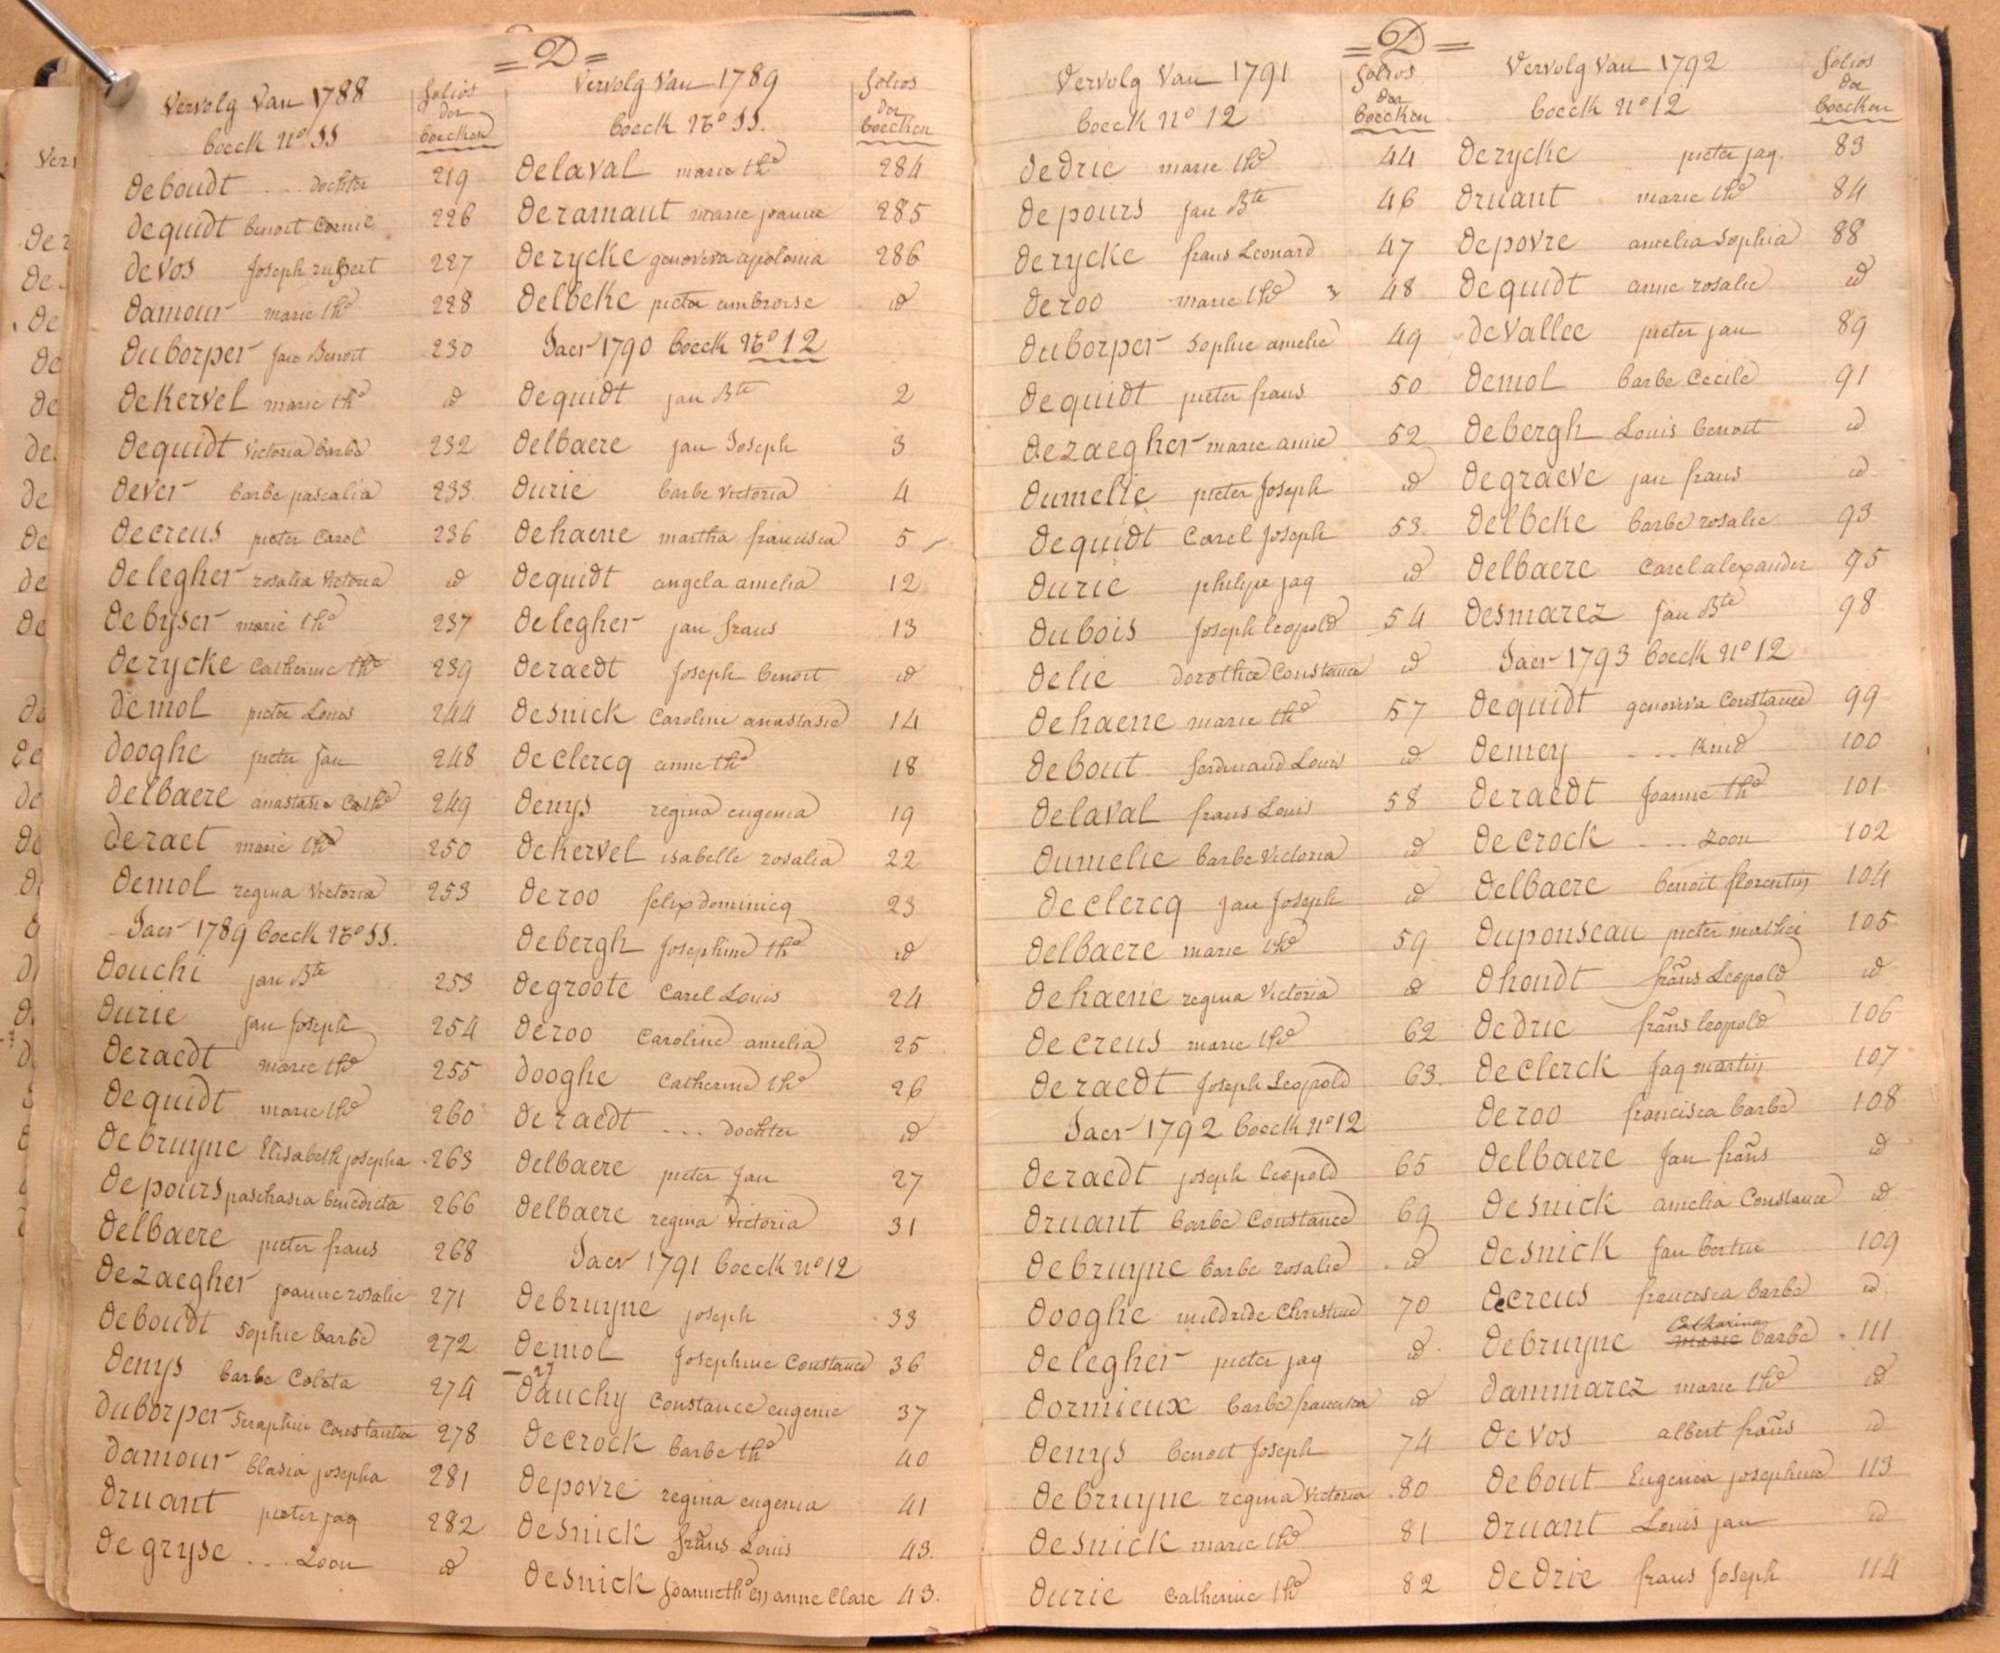 = D =
Vervolg Van 1788
boeck N° 11
folios
der
boecken
deboudt ... dochter 219
dequidt benoit Cornil 226
devos Joseph rubert 227
damour marie th^e 228
duborper jan Benoit 230
dekervel marie th^e id
dequidt Victoria barbe 232
dever barbe pascalia 233
decreus pieter Carel 236
delegher rosalia Victoria id
debyser marie th^e 237
derycke Catherine th^e 239
demol pieter Louis 244
dooghe pieter jan 248
delbaere anastasia Cath^e 249
deraet marie th^e 250
demol regina Victoria 253
Jaer 1789 boeck N° 11.
douchi jan Bte 253
durie jan Joseph 254
deraedt marie th^e 255
dequidt marie th^e 260
debruyne Elisabeth josepha 263
depours paschasia benedicta 266
delbaere pieter frans 268
dezaegher joanne rosalie 271
deboudt Sophie barbe 272
denys barbe Coleta 274
duborper Seraphin Constantia 278
damour blasia josepha 281
druant pieter jaq 282
degryse ... Zoon id
Vervolg Van 1789
boeck N° 11.
folios
der
boecken
delaval marie th^e 284
deramaut marie joanne 285
derycke genoveva apolonia 286
delbeke pieter ambroise id
Jaer 1790 boeck N° 12
dequidt jan Bte 2
delbaere jan Joseph 3
durie barbe Victoria 4
dehaene martha francisca 5
dequidt angela amelia 12
delegher jan frans 13
deraedt Joseph benoit id
desnick Caroline anastasie 14
declercq anne th^e 18
denys regina eugenia 19
dekervel isabelle rosalia 22
deroo felix dominicq 23
debergh Josephine th^e id
degroote Carel Louis 24
deroo Caroline amelia 25
dooghe Catherine th^e 26
deraedt ... dochter id
delbaere pieter jan 27
delbaere regina Victoria 31
Jaer 1791 boeck n° 12
debruyne joseph 33
demol Josephine Constance 36
dauchy Constance eugenie 37
decrock barbe th^e 40
depovre regina eugenia 41
desnick frans Louis 43.
desnick joanneth^e en anne Clare 43.
= D =
Vervolg Van 1791
boeck N° 12
folios
der
boecken
dedrie marie th^e 44
depours jan Bte 46
derycke frans Leonard 47
deroo marie th^e 48
duborper Sophie amelie 49
dequidt pieter frans 50
dezaegher marie anne 52
dumelie pieter Joseph id
dequidt Carel Joseph 53.
durie philipe jaq id
dubois Joseph leopold 54
delie dorothea Constance id
dehaene marie th^e 57
debout ferdinand Louis id
delaval frans Louis 58
dumelie barbe Victoria id
declercq jan Joseph id
delbaere marie th^e 59
dehaene regina Victoria id
decreus marie th^e 62
deraedt Joseph Leopold 63.
Jaer 1792 boeck n° 12
deraedt joseph leopold 65
druant barbe Constance 69
debruyne barbe rosalie id
dooghe mildride Christine 70
delegher pieter jaq id
dormieux barbe francisca id
denys benoit Joseph 74
debruyne regina Victoria 80
desnick marie th^e 81
durie Catherine th^e 82
Vervolg Van 1792
boeck N° 12
folios
der
boecken
derycke pieter jaq. 83
druant marie th^e 84
depovre amelia Sophia 88
dequidt anne rosalie id
devallee pieter jan 89
demol barbe Cecile 91
debergh Louis benoit id
degraeve jan frans id
delbeke barbe rosalie 93
delbaere Carel alexander 95
desmarez jan Bte 98
Jaer 1793 boeck N° 12
dequidt genoviva Constance 99
demey ... kind 100
deraedt Joanne th^e 101
decrock ... Zoon 102
delbaere benoit florentin 104
duponseau pieter mathei 105
dhondt frans Leopold id
dedrie frans leopold 106
declerck Jaq martin 107
deroo francisca barbe 108
delbaere Jan frans id
desnick amelia Constance id
desnick Jan bertin 109
decreus francisca barbe id
Catharina
debruyne marie barbe 111
dammarez marie th^e id
devos albert frans id
debout Eugenia josephine 113
druant Louis jan id
dedrie frans Joseph 114